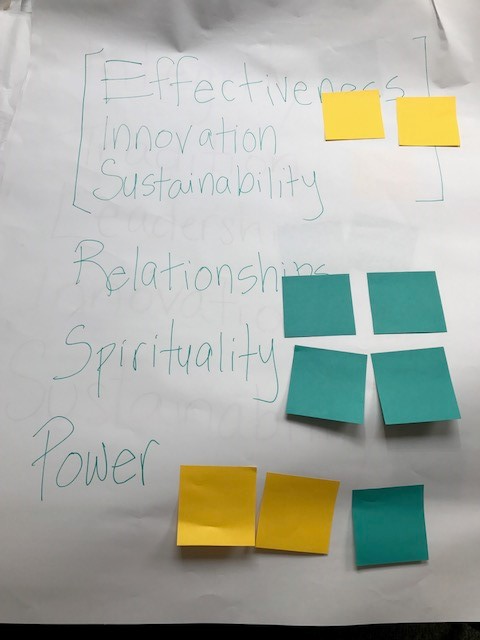 Effectiveness
Innovation
Sustainability
Relationships
Spirituality
Power